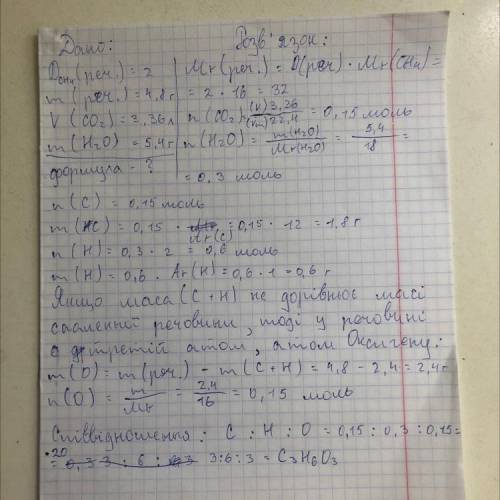 Дано: Розв'язок:
D CH4 (реч.) = 2 Mr (реч.) = D(реч) · Mr(CH4) =
m (реч.) = 4,8 г = 2 · 16 = 32
V (CO2) = 3,36 л n(CO2) = (V)3,36 / (Vm)22,4 = 0,15 моль
m(H2O) = 5,4г n(H2O) = m(H2O) / Mr(H2O) = 5,4 / 18 =
формула - ? = 0,3 моль
n(C) = 0,15 моль
m(C) = 0,15 · Ar(C) = 0,15 · 12 = 1,8 г
n(H) = 0,3 · 2 = 0,6 моль
m(H) = 0,6 · Ar(H) = 0,6 · 1 = 0,6 г
Якщо маса (C + H) не дорівнює масі
спаленної речовини, тоді у речовині
є третій атом, атом Оксигену:
m(O) = m(реч.) - m(C+H) = 4,8 - 2,4 = 2,4г
n(O) = m / Mr = 2,4 / 16 = 0,15 моль
Співвідношення: C : H : O = 0,15 : 0,3 : 0,15 =
·20 = 3:6:3 = C3H6O3